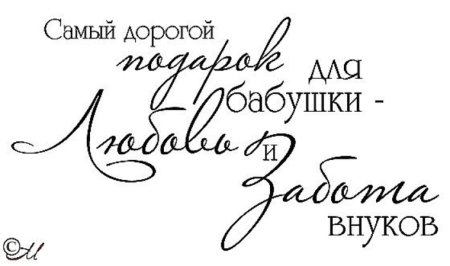 Самый дорогой
подарок для
бабушки -
Любовь и
Забота
внуков
©М